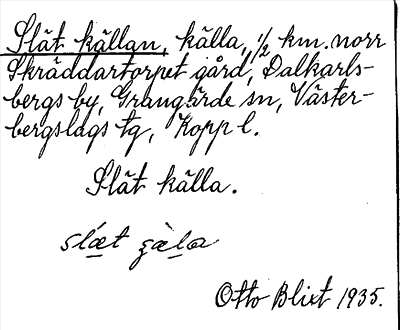 Slät källan, källa, 1/2 km. norr
Skräddartorpet gård, Dalkarls-
bergs by, Grangärde sn, Väster-
bergslags tg, Kopp l.
Slät källa.
slǽt
Otto Blixt 1935.